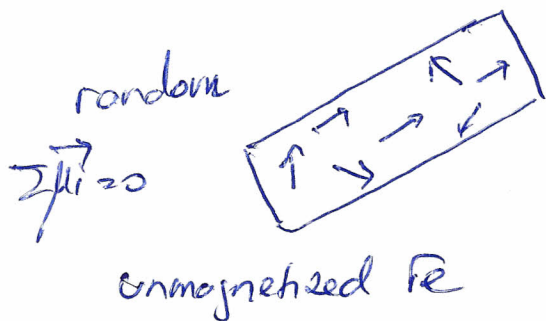 random
Σμ⃗i=0
unmagnetized Fe